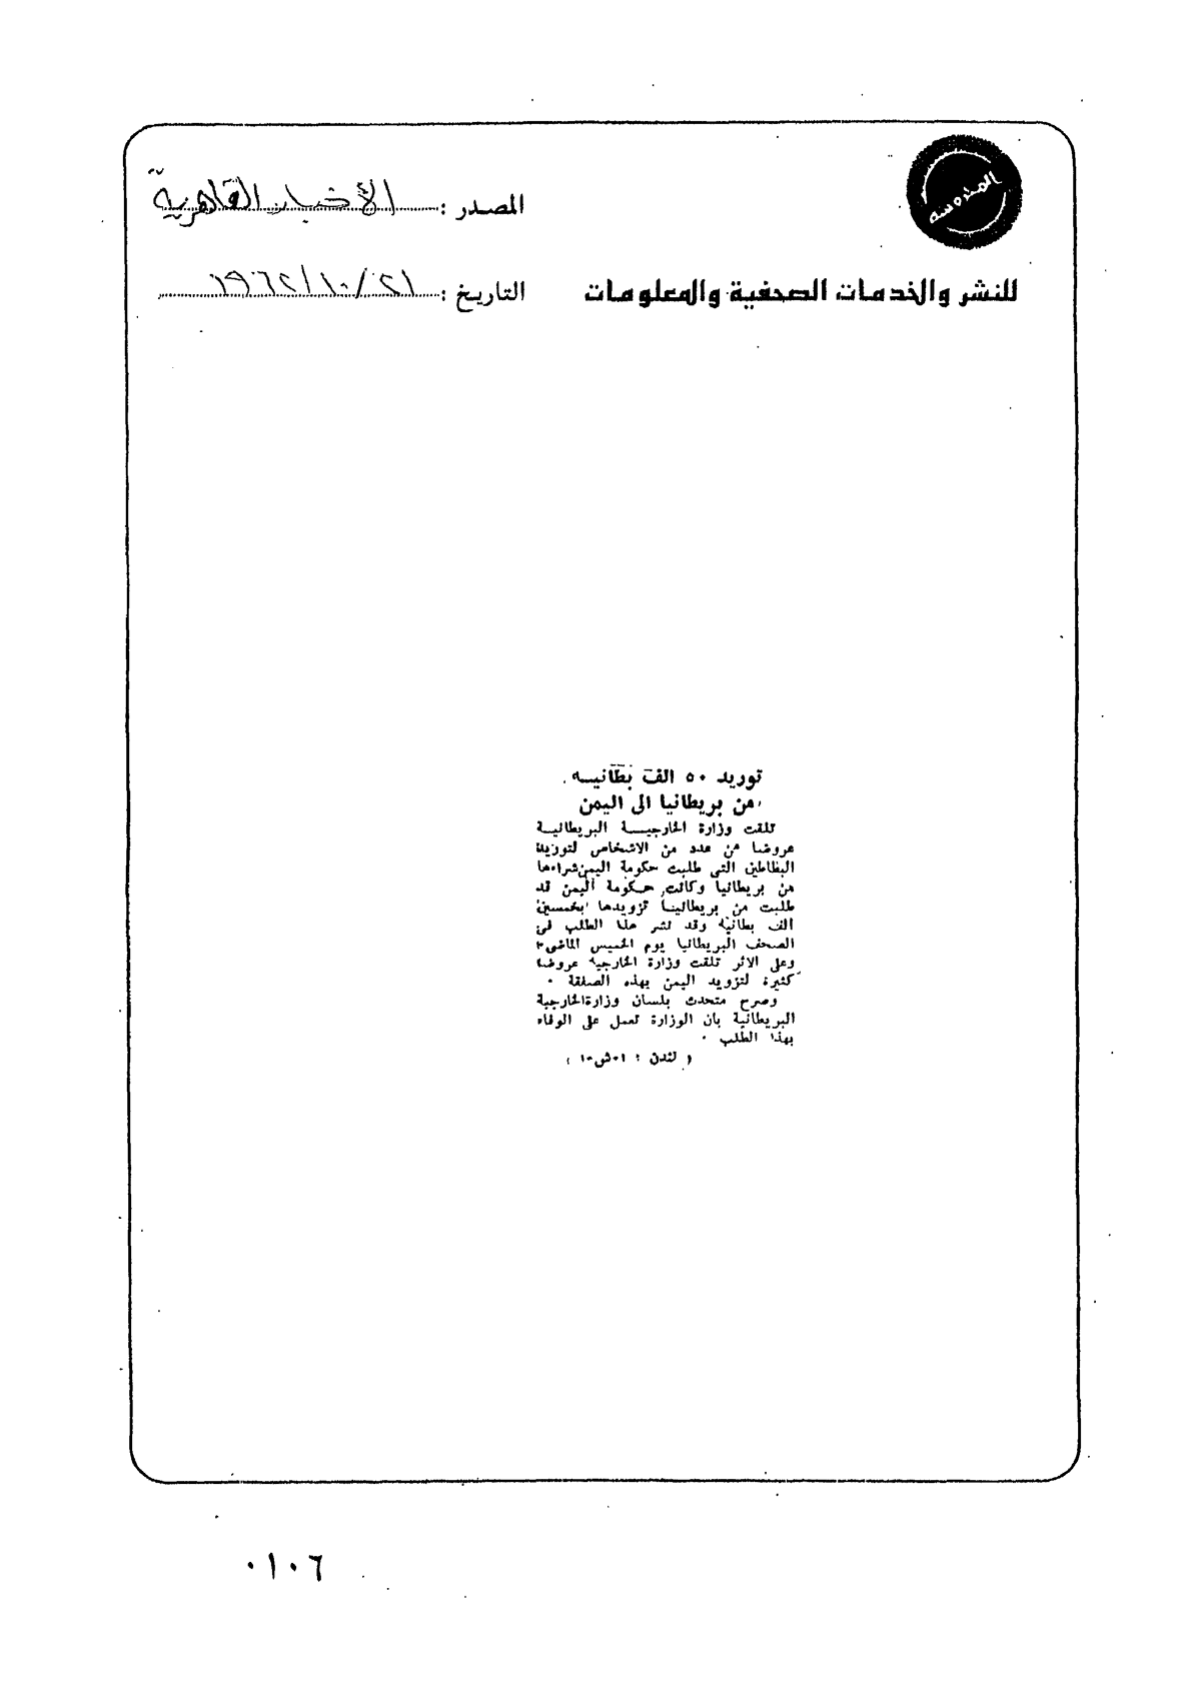 المحروسة
المصدر : الأخبار القاهرية
للنشر والخدمات الصحفية والمعلومات
التاريخ : ٢١/١٠/١٩٦٢
توريد ٥٠ الف بطانيسه
من بريطانيا الى اليمن
تلقت وزارة الخارجيسة البريطانيسة
عروضا من عدد من الاشخاص لتوريد
البطاطين التى طلبت حكومة اليمن شراءها
من بريطانيا وكانت حكومة اليمن قد
طلبت من بريطانيا تزويدها بخمسين
الف بطانية وقد نشر هذا الطلب فى
الصحف البريطانيا يوم الخميس الماضى
وعلى الاثر تلقت وزارة الخارجية عروضا
كثيرة لتزويد اليمن بهذه الصفقة .
وصرح متحدث بلسان وزارة الخارجية
البريطانية بان الوزارة تعمل على الوفاء
بهذا الطلب .
( لندن : ا.ش.ا )
٠١٠٦